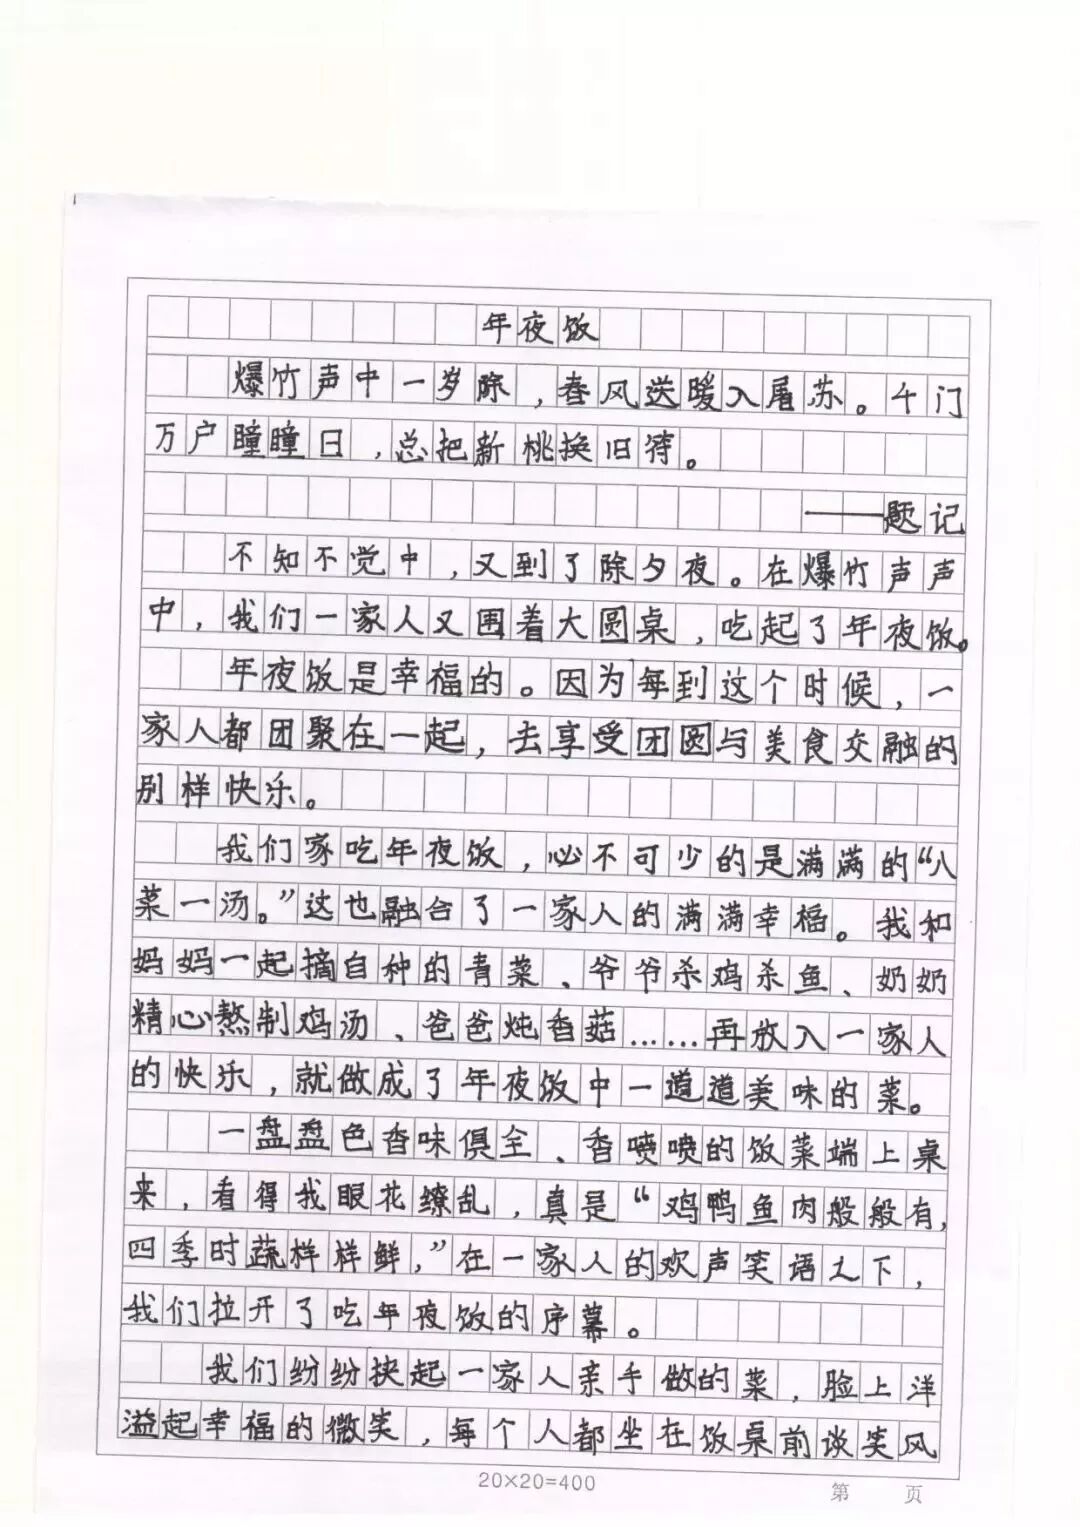 年夜饭
爆竹声中一岁除，春风送暖入屠苏。千门
万户瞳瞳日，总把新桃换旧符。
——题记
不知不觉中，又到了除夕夜。在爆竹声声
中，我们一家人又围着大圆桌，吃起了年夜饭。
年夜饭是幸福的。因为每到这个时候，一
家人都团聚在一起，去享受团圆与美食交融的
别样快乐。
我们家吃年夜饭，必不可少的是满满的“八
菜一汤。”这也融合了一家人的满满幸福。我和
妈妈一起摘自种的青菜、爷爷杀鸡杀鱼、奶奶
精心熬制鸡汤、爸爸炖香菇……再放入一家人
的快乐，就做成了年夜饭中一道道美味的菜。
一盘盘色香味俱全、香喷喷的饭菜端上桌
来，看得我眼花缭乱，真是“鸡鸭鱼肉般般有，
四季时蔬样样鲜，”在一家人的欢声笑语之下，
我们拉开了吃年夜饭的序幕。
我们纷纷挟起一家人亲手做的菜，脸上洋
溢起幸福的微笑，每个人都坐在饭桌前谈笑风
20×20=400
第 页